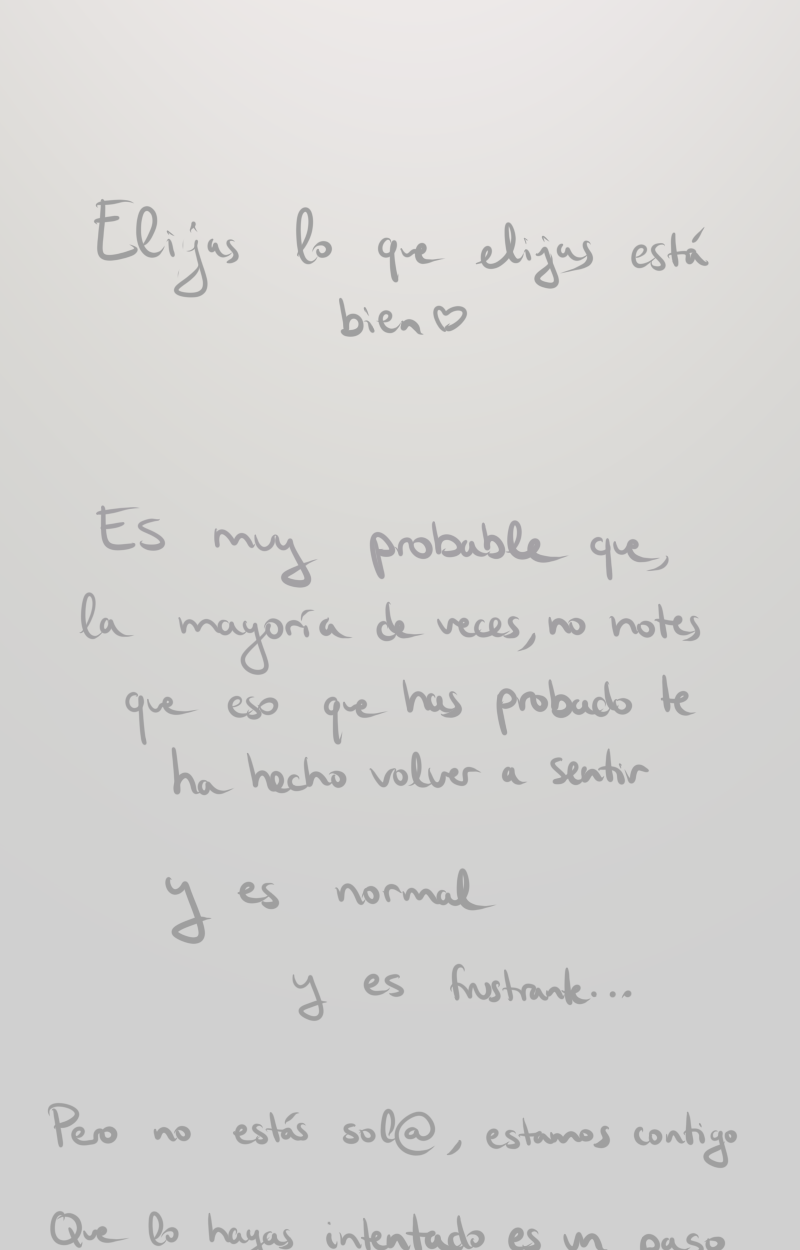 Elijas lo que elijas está
bien♡
Es muy probable que,
la mayoría de veces, no notes
que eso que has probado te
ha hecho volver a sentir
y es normal
y es frustrante...
Pero no estás sol@, estamos contigo
Que lo hayas intentado es un paso